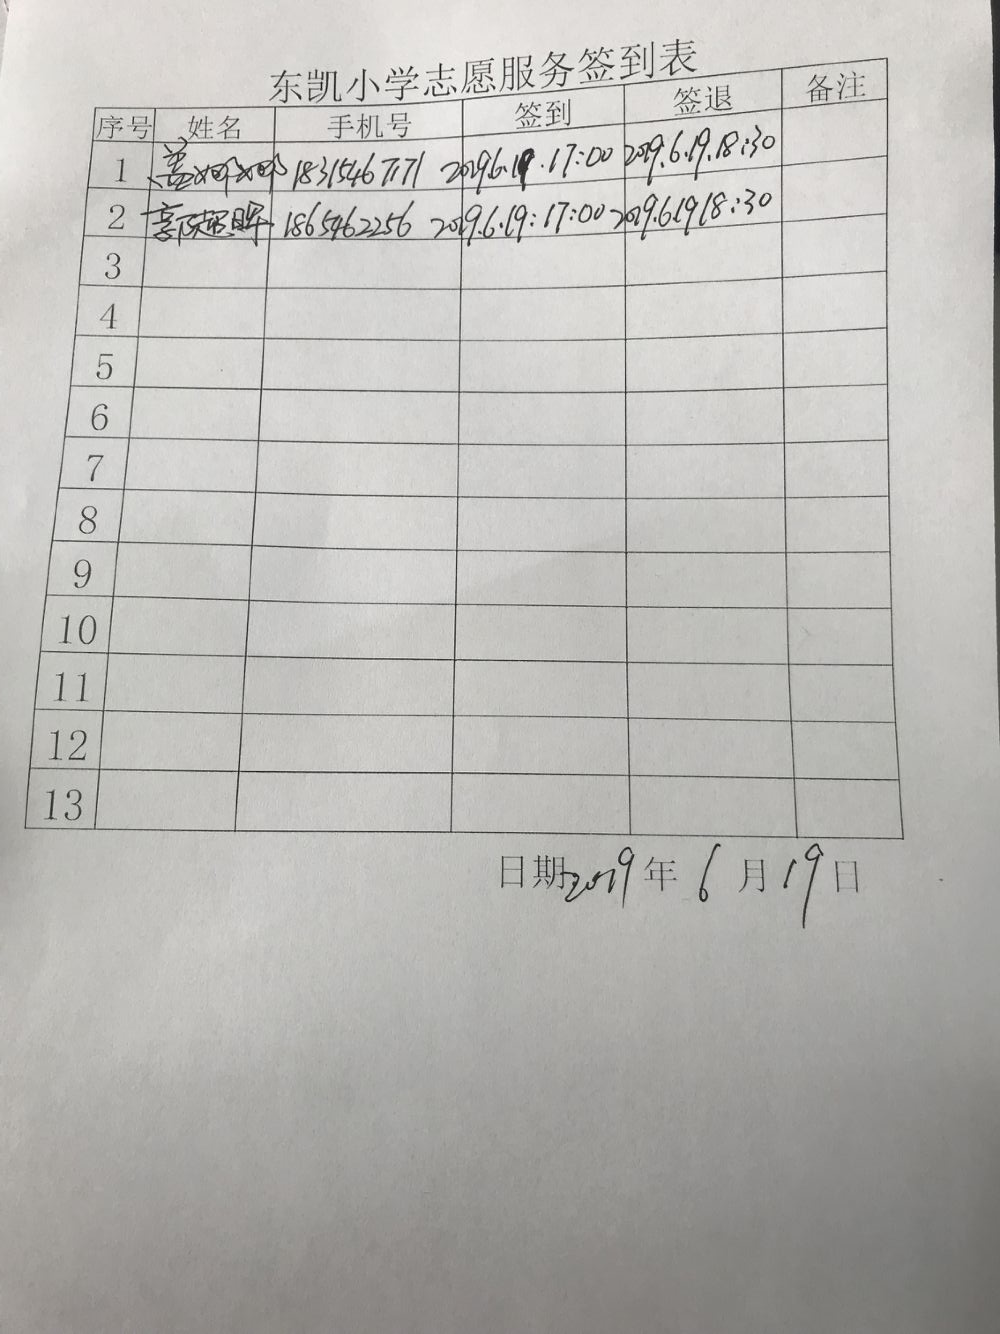 东凯小学志愿服务签到表
序号 姓名 手机号 签到 签退 备注
1 盖娜娜 18315467171 2019.6.19.17:00 2019.6.19.18:30
2 郭超晖 1865462256 2019.6.19:17:00 2019.6.19 18:30
3
4
5
6
7
8
9
10
11
12
13
日期2019年6月19日